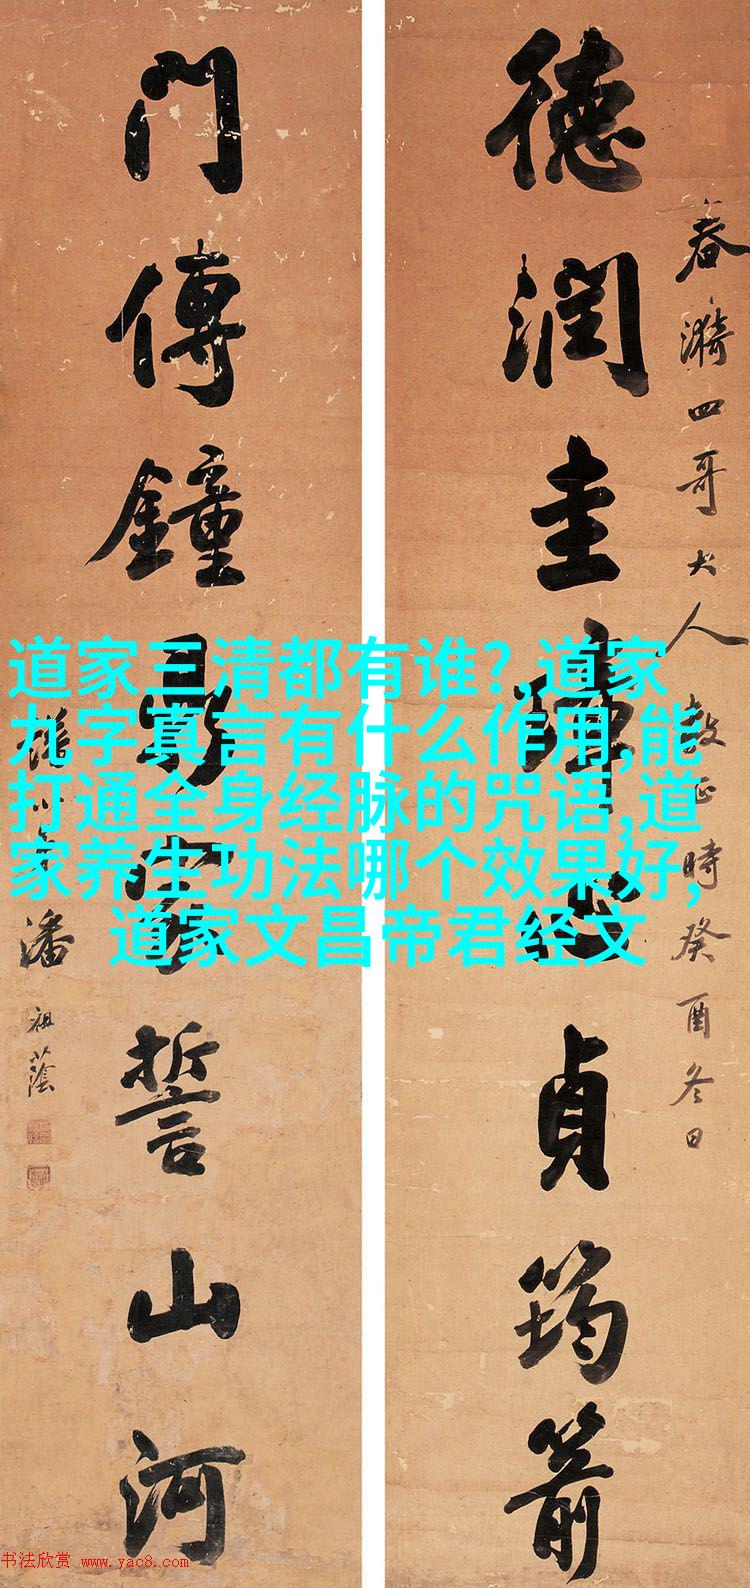 德润圭璋心貞筠箭
春漪四哥大人
時癸酉冬日
門傳鐘鼎家誓山河
潘祖蔭
道家三清都有谁?,道家
九字真言有什么作用,能
打通全身经脉的咒语,道
家养生功法哪个效果好,
道家文昌帝君经文
书法欣赏 www.yac8.com